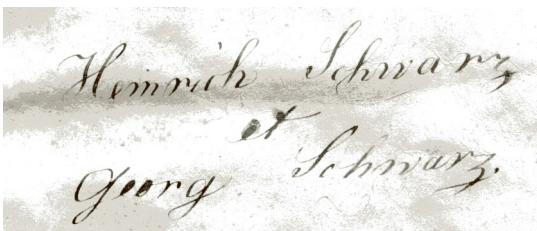 Heinrich Schwarz
et
Georg Schwarz.